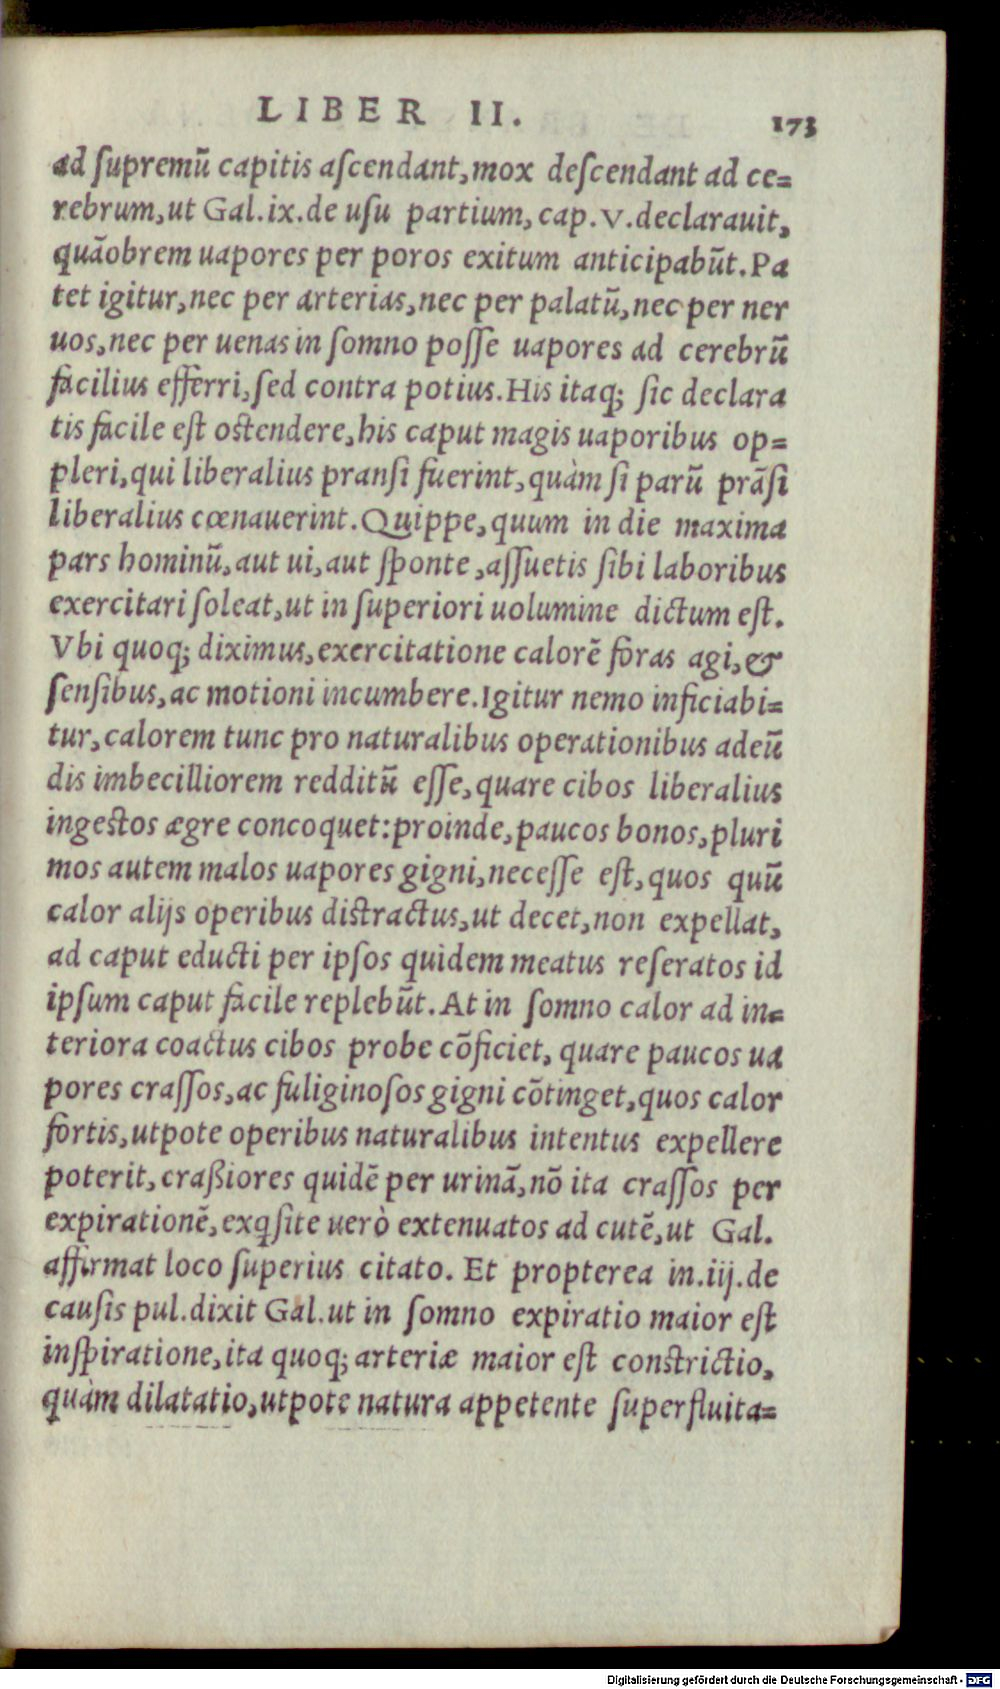 LIBER II. 173
ad supremũ capitis ascendant, mox descendant ad ce=
rebrum, ut Gal. ix. de usu partium, cap. V. declarauit,
quãobrem uapores per poros exitum anticipabũt. Pa
tet igitur, nec per arterias, nec per palatũ, nec per ner
uos, nec per uenas in somno posse uapores ad cerebrũ
facilius efferri, sed contra potius. His itaq; sic declara
tis facile est ostendere, his caput magis uaporibus op=
pleri, qui liberalius pransi fuerint, quàm si parũ prãsi
liberalius cœnauerint. Quippe, quum in die maxima
pars hominũ, aut ui, aut sponte, assuetis sibi laboribus
exercitari soleat, ut in superiori uolumine dictum est.
Vbi quoq; diximus, exercitatione calorẽ foras agi, &
sensibus, ac motioni incumbere. Igitur nemo inficiabi=
tur, calorem tunc pro naturalibus operationibus adeũ
dis imbecilliorem redditũ esse, quare cibos liberalius
ingestos ægre concoquet: proinde, paucos bonos, pluri
mos autem malos uapores gigni, necesse est, quos quũ
calor alijs operibus distractus, ut decet, non expellat,
ad caput educti per ipsos quidem meatus reseratos id
ipsum caput facile replebũt. At in somno calor ad in=
teriora coactus cibos probe cõficiet, quare paucos ua
pores crassos, ac fuliginosos gigni cõtinget, quos calor
fortis, utpote operibus naturalibus intentus expellere
poterit, craßiores quidẽ per urinã, nõ ita crassos per
expirationẽ, exqsite uerò extenuatos ad cutẽ, ut Gal.
affirmat loco superius citato. Et propterea in. iij. de
causis pul. dixit Gal. ut in somno expiratio maior est
inspiratione, ita quoq; arteriæ maior est constrictio,
quàm dilatatio, utpote natura appetente superfluita=
Digitalisierung gefördert durch die Deutsche Forschungsgemeinschaft - DFG